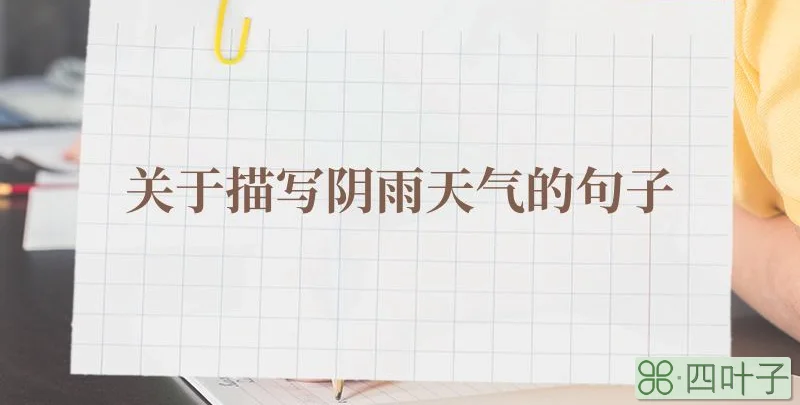 关于描写阴雨天气的句子
四叶子